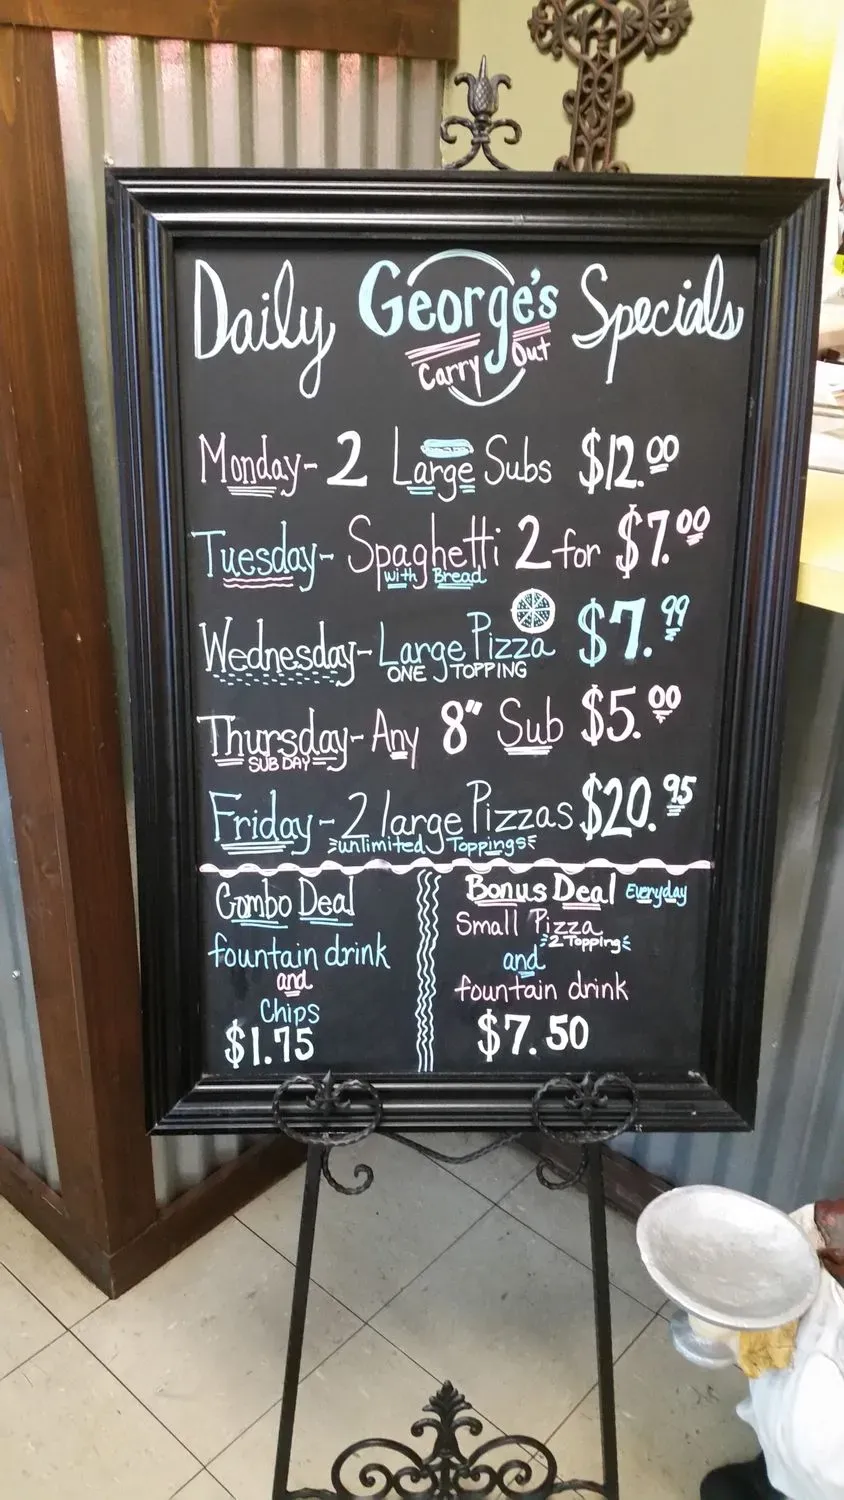 Daily George's Specials
Carry Out
Monday- 2 Large Subs $12.00
Tuesday- Spaghetti 2 for $7.00
with Bread
Wednesday- Large Pizza $7.99
ONE TOPPING
Thursday- Any 8" Sub $5.00
SUB DAY
Friday- 2 large Pizzas $20.95
unlimited Toppings
Combo Deal
fountain drink
and
Chips
$1.75
Bonus Deal Everyday
Small Pizza
2 Topping
and
fountain drink
$7.50